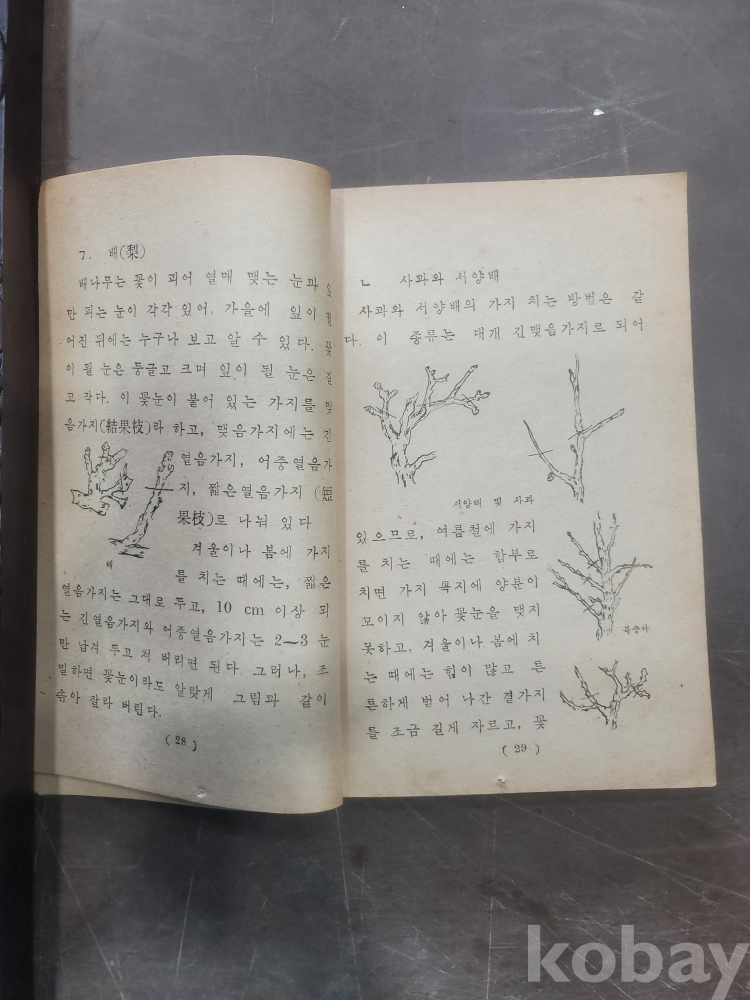 ㄱ. 배(梨)
배나무는 꽃이 피어 열매 맺는 눈과 잎
만 피는 눈이 각각 있어, 가을에 잎이 떨
어진 뒤에는 누구나 보고 알 수 있다. 꽃
이 될 눈은 둥글고 크며 잎이 될 눈은 길
고 작다. 이 꽃눈이 붙어 있는 가지를 맺
음가지(結果枝)라 하고, 맺음가지에는 긴
열음가지, 어중열음가
지, 짧은열음가지 (短
果枝)로 나눠 있다
배
겨울이나 봄에 가지
를 치는 때에는, 짧은
열음가지는 그대로 두고, 10 cm 이상 되
는 긴열음가지와 어중열음가지는 2—3 눈
만 남겨 두고 쳐 버리면 된다. 그러나, 조
밀하면 꽃눈이라도 알맞게 그림과 같이
솎아 잘라 버린다.
( 28 )
ㄴ. 사과와 서양배
사과와 서양배의 가지 치는 방법은 같
다. 이 종류는 대개 긴맺음가지로 되어
서양배 및 사과
있으므로, 여름철에 가지
를 치는 때에는 함부로
치면 가지 목지에 양분이
모이지 않아 꽃눈을 맺지
못하고, 겨울이나 봄에 치
는 때에는 힘이 많고 튼
튼하게 벋어 나간 결가지
를 조금 길게 자르고, 꽃
복숭아
( 29 )
kobay